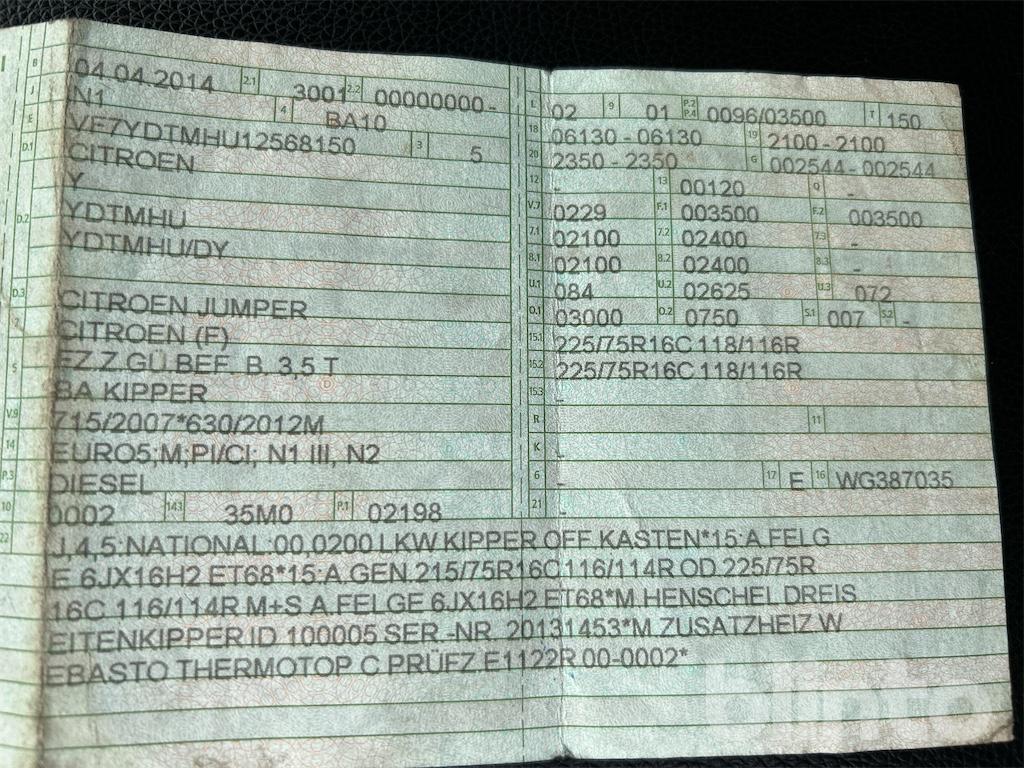 B 04.04.2014 2.1 3001 2.2 00000000 -
J N1 4 BA10
E VF7YDTMHU12568150 3 5
D.1 CITROEN
Y
D.2 YDTMHU
YDTMHU/DY
D.3 CITROEN JUMPER
2 CITROEN (F)
5 FZ.Z.GÜ.BEF. B. 3,5 T
BA KIPPER
V.9 715/2007*630/2012M
14 EURO5;M;PI/CI; N1 III, N2
P.3 DIESEL
10 0002 14.1 35M0 P.1 02198
L 02 9 01 P.2 P.4 0096/03500 T 150
18 06130 - 06130 19 2100 - 2100
20 2350 - 2350 G 002544 - 002544
12 - 13 00120 Q -
V.7 0229 F.1 003500 F.2 003500
7.1 02100 7.2 02400 7.3 -
8.1 02100 8.2 02400 8.3 -
U.1 084 U.2 02625 U.3 072
O.1 03000 O.2 0750 S.1 007 S.2 -
15.1 225/75R16C 118/116R
15.2 225/75R16C 118/116R
15.3 -
R 11
K -
6 - 17 E 16 WG387035
21 -
22 J,4,5:NATIONAL:00,0200 LKW KIPPER OFF. KASTEN*15:A.FELG
E 6JX16H2 ET68*15:A.GEN.215/75R16C 116/114R OD.225/75R
16C 116/114R M+S A.FELGE 6JX16H2 ET68*M.HENSCHEL DREIS
EITENKIPPER ID 100005 SER.-NR. 20131453*M.ZUSATZHEIZ.W
EBASTO THERMOTOP C PRÜFZ.E1122R 00-0002*
blinto